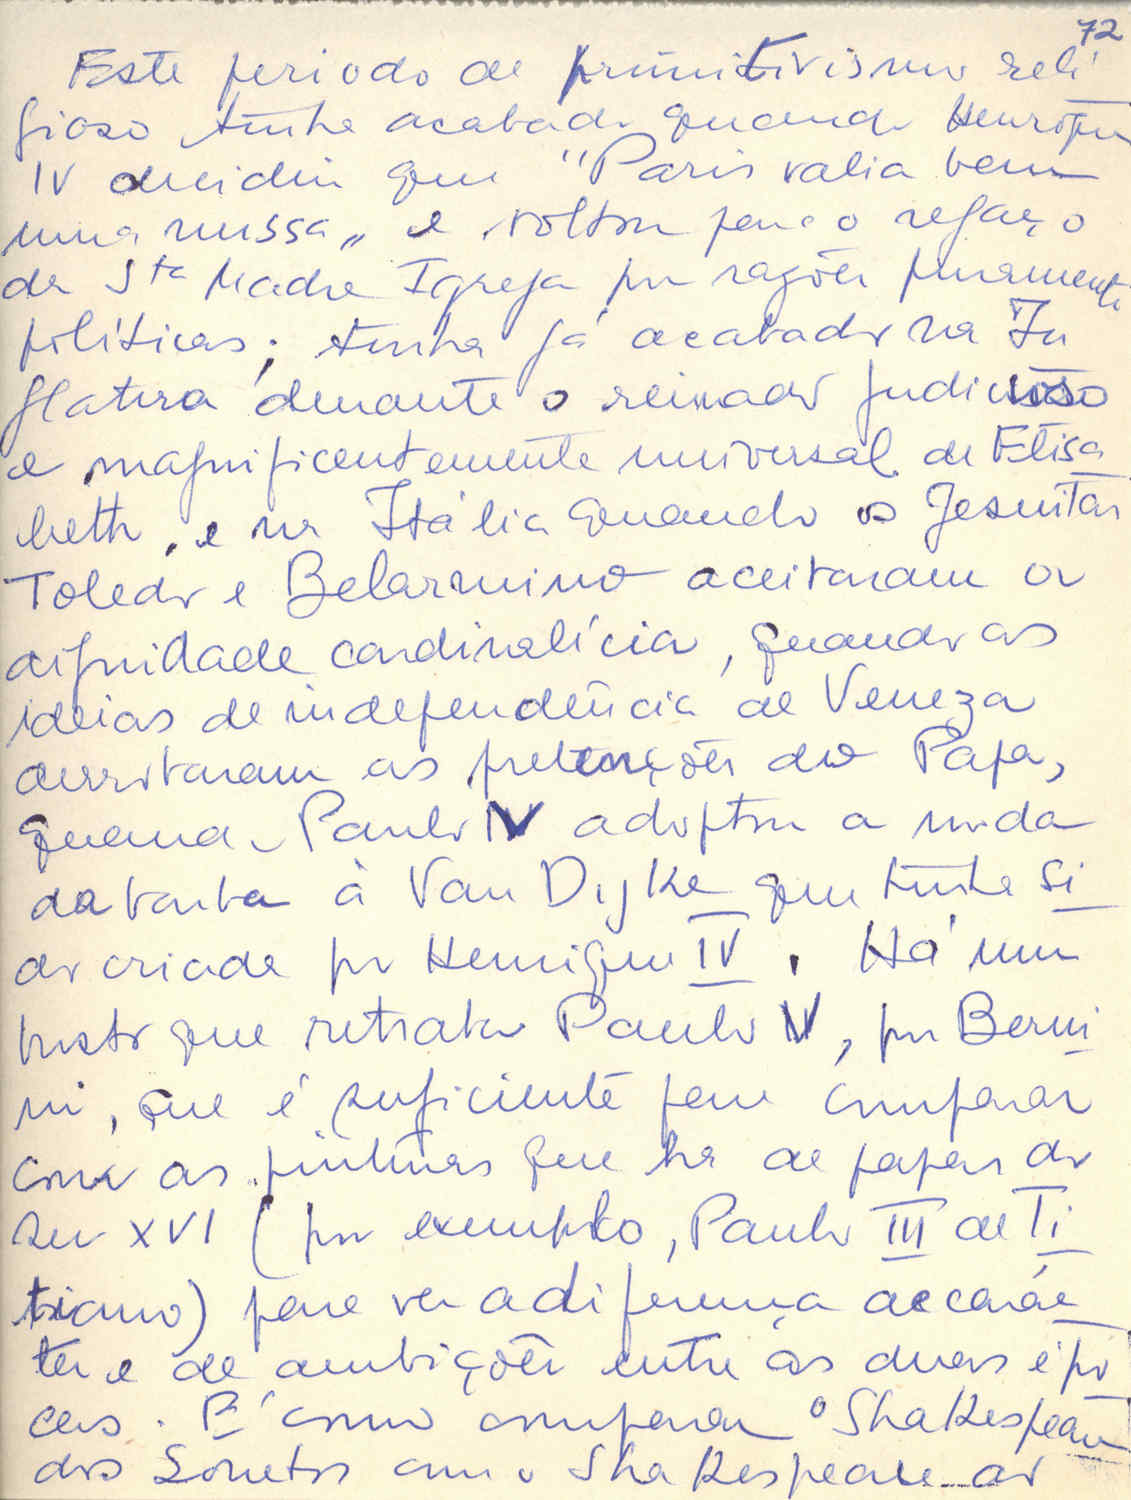 72
Este periodo de primitivismo reli
gioso tinha acabado quando Henrique
IV decidiu que "Paris valia bem
uma missa„ e voltou para o regaço
da Sta Madre Igreja por razões puramente
políticas; tinha já acabado na In
glaterra durante o reinado judicioso
e magnificentemente universal de Elisa
beth, e na Itália quando os Jesuitas
Toledo e Belarmino aceitaram a
dignidade cardinalícia, quando as
ideias de independência de Veneza
derrotaram as pretenções do Papa,
quando Paulo V adoptou a moda
da barba à Van Dyke que tinha si
do criada por Henrique IV. Há um
busto que retrata Paulo V, por Berni
ni, que é suficiente para comparar
com as pinturas que ha de papas do
sec XVI (por exemplo, Paulo III de Ti
tiano) para ver a diferença de carác
ter e de ambições entre as duas épo
cas. É como comparar o Shakespeare
dos Sonetos com o Shakespeare do